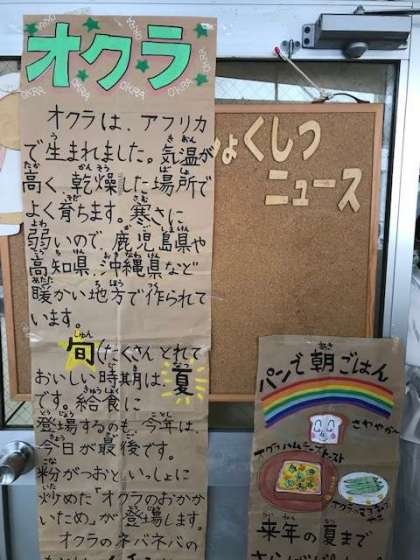 オクラ
オクラは、アフリカ
で生まれました。気温が
高く、乾燥した場所で
よく育ちます。寒さに
弱いので、鹿児島県や
高知県、沖縄県など
暖かい地方で作られて
います。
旬(たくさんとれて
おいしい時期)は夏
です。給食に
登場するのも、今年は
今日が最後です。
粉かつおといっしょに
炒めた「オクラのおかか
いため」が登場します。
オクラのネバネバの
ょくしつ
ニュース
パンで朝ごはん
さわやか〜
来年の夏まで